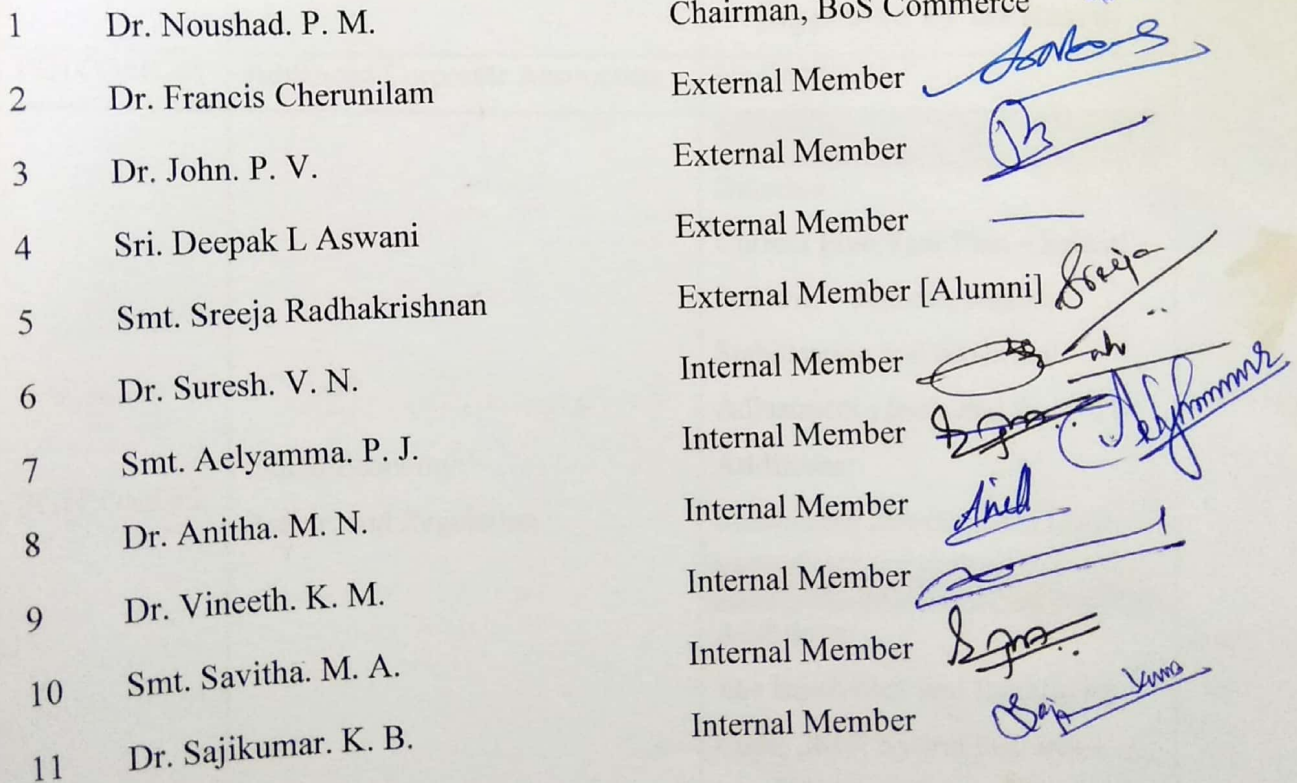 1 Dr. Noushad. P. M. Chairman, BoS Commerce
2 Dr. Francis Cherunilam External Member
3 Dr. John. P. V. External Member
4 Sri. Deepak L Aswani External Member
5 Smt. Sreeja Radhakrishnan External Member [Alumni] Sreeja
6 Dr. Suresh. V. N. Internal Member
7 Smt. Aelyamma. P. J. Internal Member
8 Dr. Anitha. M. N. Internal Member
9 Dr. Vineeth. K. M. Internal Member
10 Smt. Savitha. M. A. Internal Member
11 Dr. Sajikumar. K. B. Internal Member